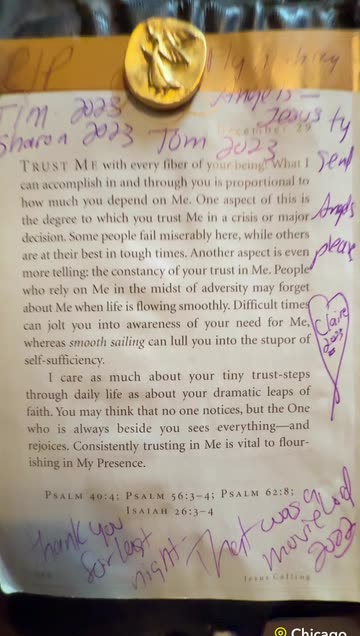 RIP
Angels -
Tim 2023
Jesus
Sharon 2023 Tom 2023
December 29
TRUST ME with every fiber of your being! What I
can accomplish in and through you is proportional to
how much you depend on Me. One aspect of this is
the degree to which you trust Me in a crisis or major
decision. Some people fail miserably here, while others
are at their best in tough times. Another aspect is even
more telling: the constancy of your trust in Me. People
who rely on Me in the midst of adversity may forget
about Me when life is flowing smoothly. Difficult times
can jolt you into awareness of your need for Me,
whereas smooth sailing can lull you into the stupor of
self-sufficiency.
I care as much about your tiny trust-steps
through daily life as about your dramatic leaps of
faith. You may think that no one notices, but the One
who is always beside you sees everything—and
rejoices. Consistently trusting in Me is vital to flour-
ishing in My Presence.
ty
send
Angels
please
Claire
2023
PSALM 40:4; PSALM 56:3–4; PSALM 62:8;
ISAIAH 26:3–4
Thank you
for last
night. That was a
movie
2023
Jesus Calling
Chicago